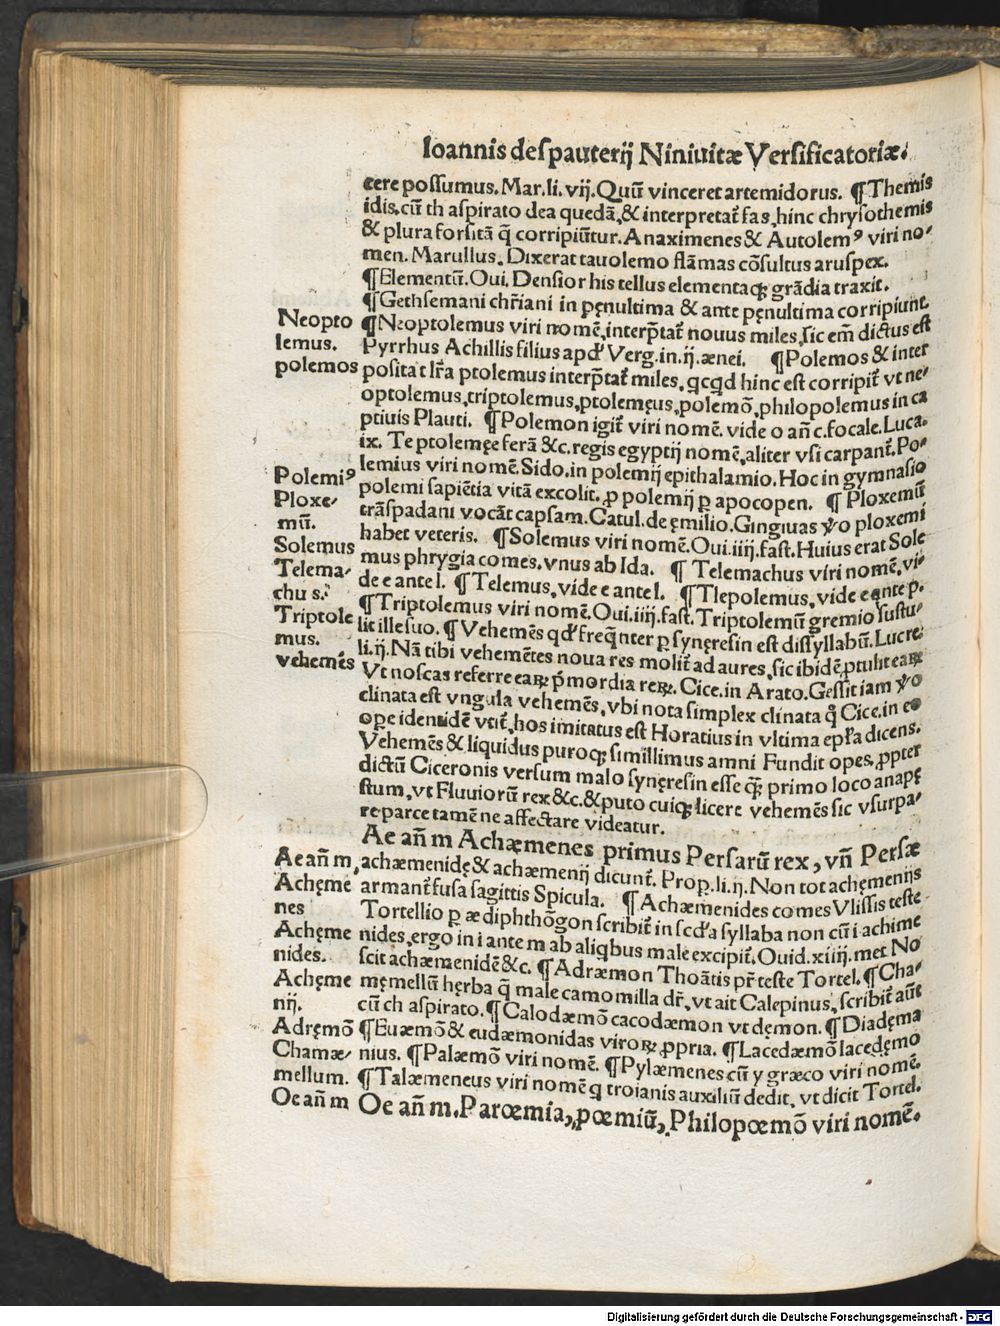 Ioannis deſpauterij Niniuitæ Verſificatoriæ.
cere poſſumus. Mar. li. vij. Quũ vinceret artemidorus. ¶Themis
idis. cũ th aſpirato dea quedã, & interpretat᷑ fas, hinc chryſothemis
& plura forſitã q̃ corripiũtur. Anaximenes & Autolemꝰ viri no⸗
men. Marullus. Dixerat tauolemo flãmas cõſultus aruſpex.
¶Elementũ. Oui. Denſior his tellus elementaq; grãdia traxit.
¶Gethſemani chr̃iani in pęnultima & ante pęnultima corripiunt.
Neopto
lemus.
polemos
¶Neoptolemus viri nomẽ, interp̃tat᷑ nouus miles, ſic em̃ dictus eſt
Pyrrhus Achillis filius apđ Verg. in. ij. ænei. ¶Polemos & inter
poſita t lr̃a ptolemus interp̃tat᷑ miles, qcqd hinc eſt corripit᷑ vt ne⸗
optolemus, triptolemus, ptolemęus, polemõ, philopolemus in ca
ptiuis Plauti. ¶Polemon igit᷑ viri nomẽ. vide o añ c. focale. Luca.
ix. Te ptolemęe ferã &c. regis egyptij nomẽ, aliter vſi carpant᷑. Po⸗
Polemiꝰ
Ploxe⸗
mũ.
Solemus
Telema⸗
chus.
Triptole
mus.
vehemẽs
lemius viri nomẽ. Sido. in polemij epithalamio. Hoc in gymnaſio
polemi ſapiẽtia vitã excolit. ꝓ polemij ꝑ apocopen. ¶Ploxemũ
trãſpadani vocãt capſam. Catul. de ęmilio. Gingiuas ṽo ploxemi
habet veteris. ¶Solemus viri nomẽ. Oui. iiij. faſt. Huius erat Sole
mus phrygia comes. vnus ab Ida. ¶Telemachus viri nomẽ, vi⸗
de e ante l. ¶Telemus, vide e ante l. ¶Tlepolemus, vide e ante p.
¶Triptolemus viri nomẽ. Oui. iiij. faſt. Triptolemũ gremio ſuſtu⸗
lit ille ſuo. ¶Vehemẽs qđ freq̃nter ꝑ ſynęreſin eſt diſſyllabũ. Lucre.
li. ij. Nã tibi vehemẽtes noua res molit᷑ ad aures, ſic ibidẽ, ptulit earꝝ
Vt noſcas referre earꝝ p̃mordia rerꝝ. Cice. in Arato. Geſſit iam ṽo
clinata eſt vngula vehemẽs, vbi nota ſimplex clinata q̃ Cice. in eo
ope identidẽ vtit᷑, hos imitatus eſt Horatius in vltima epr̃a dicens.
Vehemẽs & liquidus puroq; ſimillimus amni Fundit opes, ꝓpter
dictũ Ciceronis verſum malo ſynęreſin eſſe q̃; primo loco anapę
ſtum, vt Fluuiorũ rex &c. & puto cuiq; licere vehemẽs ſic vſurpa⸗
re parce tamẽ ne affectare videatur.
Ae añ m Achæmenes primus Perſarũ rex, vñ Perſæ
Ae añ m,
Achęme
nes
Achęme
nides.
Achęme
nij.
Adręmõ
Chamæ⸗
mellum.
achæmenidę & achæmenij dicunt᷑. Prop. li. ij. Non tot achęmenijs
armant᷑ fuſa ſagittis Spicula. ¶Achæmenides comes Vliſſis teſte
Tortellio ꝑ æ diphthõgon ſcribit᷑ in ſcđa ſyllaba non cũ i achime
nides, ergo in i ante m ab aliqbus male excipit᷑. Ouid. xiiij. met. No
ſcit achæmenidẽ &c. ¶Adræmon Thoãtis pr̃ teſte Tortel. ¶Cha⸗
męmellũ hęrba q̃ male camomilla dr̃, vt ait Calepinus, ſcribit᷑ aũt
cũ ch aſpirato. ¶Calodæmõ cacodæmon vt dęmon. ¶Diadęma
¶Euæmõ & eudæmonidas virorꝝ ꝓpria. ¶Lacedæmõ lacedęmo
nius. ¶Palæmõ viri nomẽ. ¶Pylæmenes cũ y græco viri nomẽ.
¶Talæmeneus viri nomẽ q troianis auxiliũ dedit, vt dicit Tortel.
Oe añ m
Oe añ m. Parœmia, pœmiũ, Philopœmõ viri nomẽ.
Digitalisierung gefördert durch die Deutsche Forschungsgemeinschaft - DFG